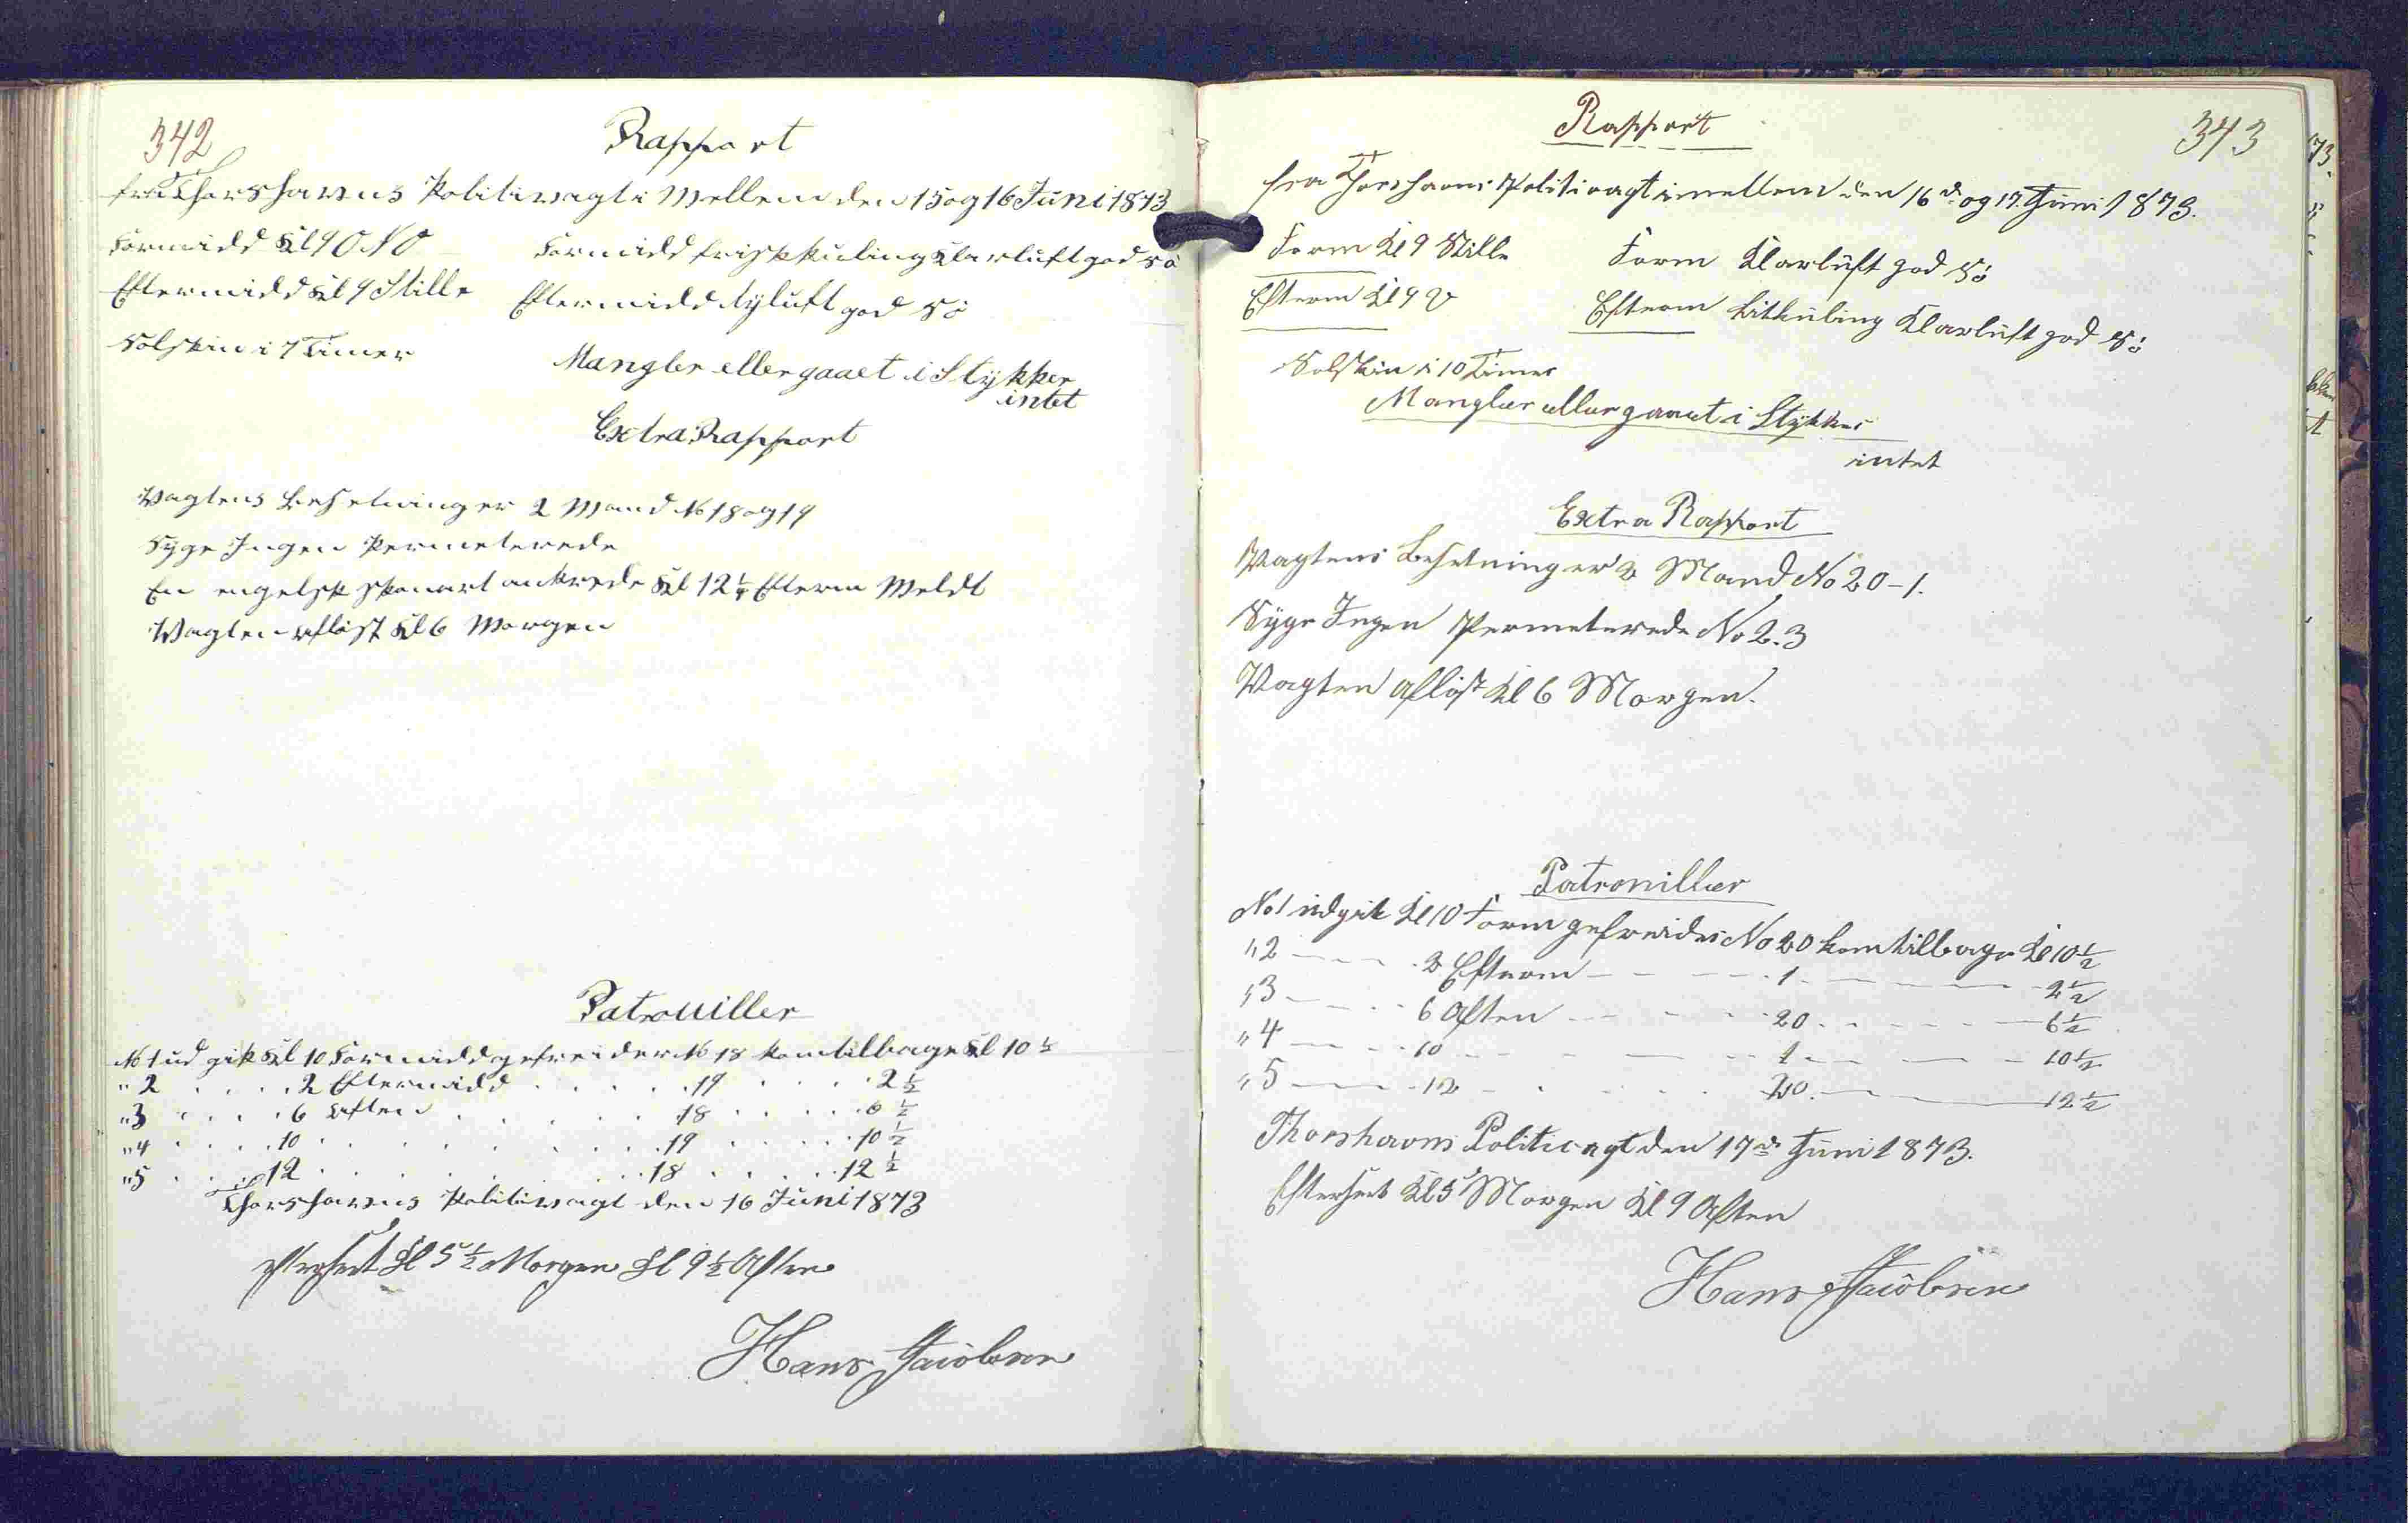 342
Rapport
fra Thorshavns Politivagt i Mellem den 15 og 16 Juni 1873
Formidd Kl 9 O N O
Formidd frisk kuling Klarluft god Sö
Eftermidd Kl 9 Stille
Eftermidd Tyluft god Sö
Solskin i 7 Timer
Mangler eller gaaet i Stÿkker
intet
Extra Rapport
Vagtens Besetninger 2 Mand No 18 og 19
Syge Ingen Permeterede
En engelsk skonart ankrede Kl 12 1/4 Efterm Meldt
Vagten aflöst Kl 6 Morgen
Patrouiller
No 1 ud gik Kl 10 Formidd gefreider No 18 kom tilbage Kl 10 1/2
" 2 . . . . 2 Eftermidd . . . . . 19 . . . . 2 1/2
" 3 . . . . 6 Aften . . . . . 18 . . . . 6 1/2
" 4 . . . . 10 . . . . . . . . 19 . . . . 10 1/2
" 5 . . . 12 . . . . . . . . 18 . . . . 12 1/2
Thorshavns Politivagt den 16 Juni 1873
Efterseet Kl 5 1/2 Morgen Kl 9 1/2 Aften
Hans Jacobsen
343
Rapport
fra Thorshavns Politivagt imellem den 16d og 17. Juni 1873.
Form Kl 9 Stille
Form Klarluft god Sö
Efterm Kl 9 V
Efterm Litkuling Klarluft god Sö
Solskin i 10 Timer
Mangler eller gaaet i Stÿkker
intet
Extra Rapport
Vagtens Besetninger 2 Mand No 20 - 1.
Syge Ingen Permeterede No 2. 3
Vagten aflöst Kl 6 Morgen.
Patrouiller
No 1 udgik Kl 10 Form gefreider No 20 kom tilbage Kl 10 1/2
" 2 — — 2 Efterm — — — 1 — — — 2 1/2
" 3 — — 6 Aften — — — 20 . — — — 6 1/2
" 4 — — 10 — — — — 1 — — — 10 1/2
" 5 — — 12 — . . . 20. — — — 12 1/2
Thorshavns Politivagt den 17d Juni 1873.
Efterseet Kl 5 Morgen Kl 9 Aften
Hans Jacobsen